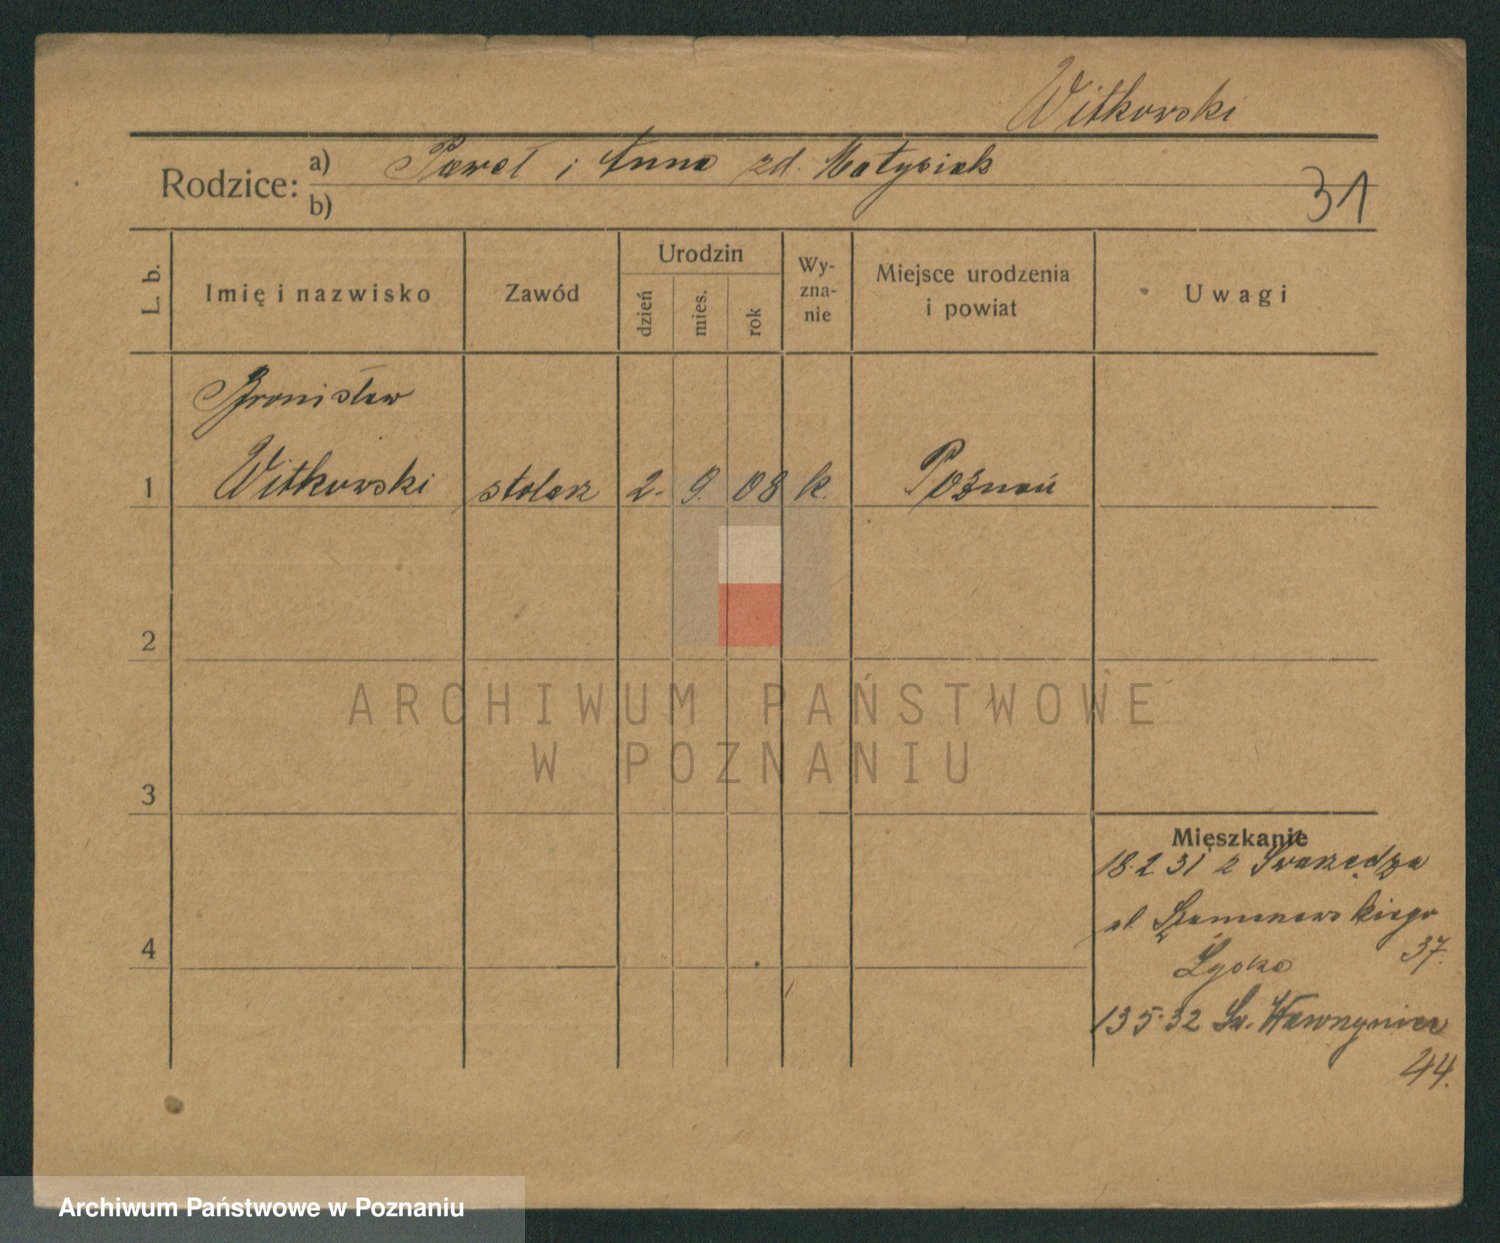 Witkowski
Rodzice: a) Paweł i Anna zd. Matysiak
b)
31
L. b.
Imię i nazwisko
Zawód
Urodzin
dzień
mies.
rok
Wy-
zna-
nie
Miejsce urodzenia
i powiat
Uwagi
Bronisław
1 Witkowski stolarz 2. 9. 08 k. Poznań
2
3
4
Mieszkanie
18.2 31 z Swarzędza
ul
37.
13 5.32 Św. Wawrzyniec
44.
ARCHIWUM PAŃSTWOWE
W POZNANIU
Archiwum Państwowe w Poznaniu